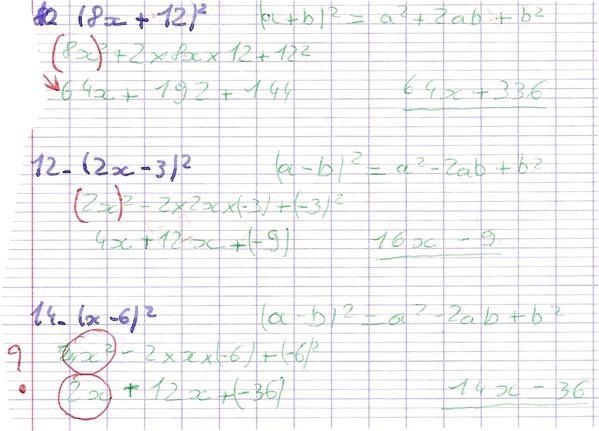 (8x + 12)² (a+b)² = a² + 2ab + b²
(8x)² + 2 × 8x × 12 + 12²
64x + 192 + 144 64x + 336
12- (2x - 3)² (a - b)² = a² - 2ab + b²
(2x)² - 2 × 2x × (-3) + (-3)²
4x + 12x + (-9) 16x - 9
14- (x - 6)² (a - b)² = a² - 2ab + b²
x² - 2 × x × (-6) + (-6)²
2x + 12x + (-36) 14x - 36